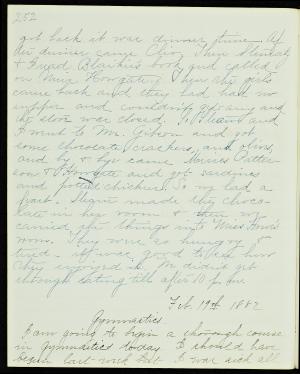 252
got back it was dinner time. Af
ter dinner came Choir. Then
& I read Blaikie's book and called
on Miss Howgate. Then the girls
came back and they had had no
supper and couldn't get any and
the store was closed. So and
I went to Mr. Gibson and got
some chocolate, crackers, and olives,
and by & by came Misses Patter-
son & Howgate and got sardines
and potted chicken. So we had a
feast. made the choco-
late in her room & then we
carried the things into Miss
room. They were so hungry &
tired. It was good to see how
they enjoyed it. We didn't get
through eating till after 10 p.m.
Feb. 19th 1882
Gymnastics
I am going to begin a thorough course
in gymnastics today. I should have
begun last week but I was sick all